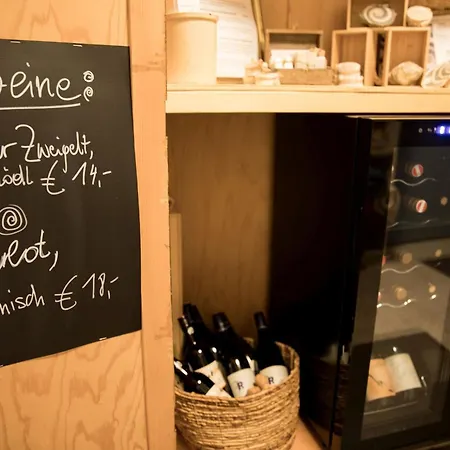 eine:
r Zweigelt,
ödl € 14,-
lot,
nisch € 18,-
R